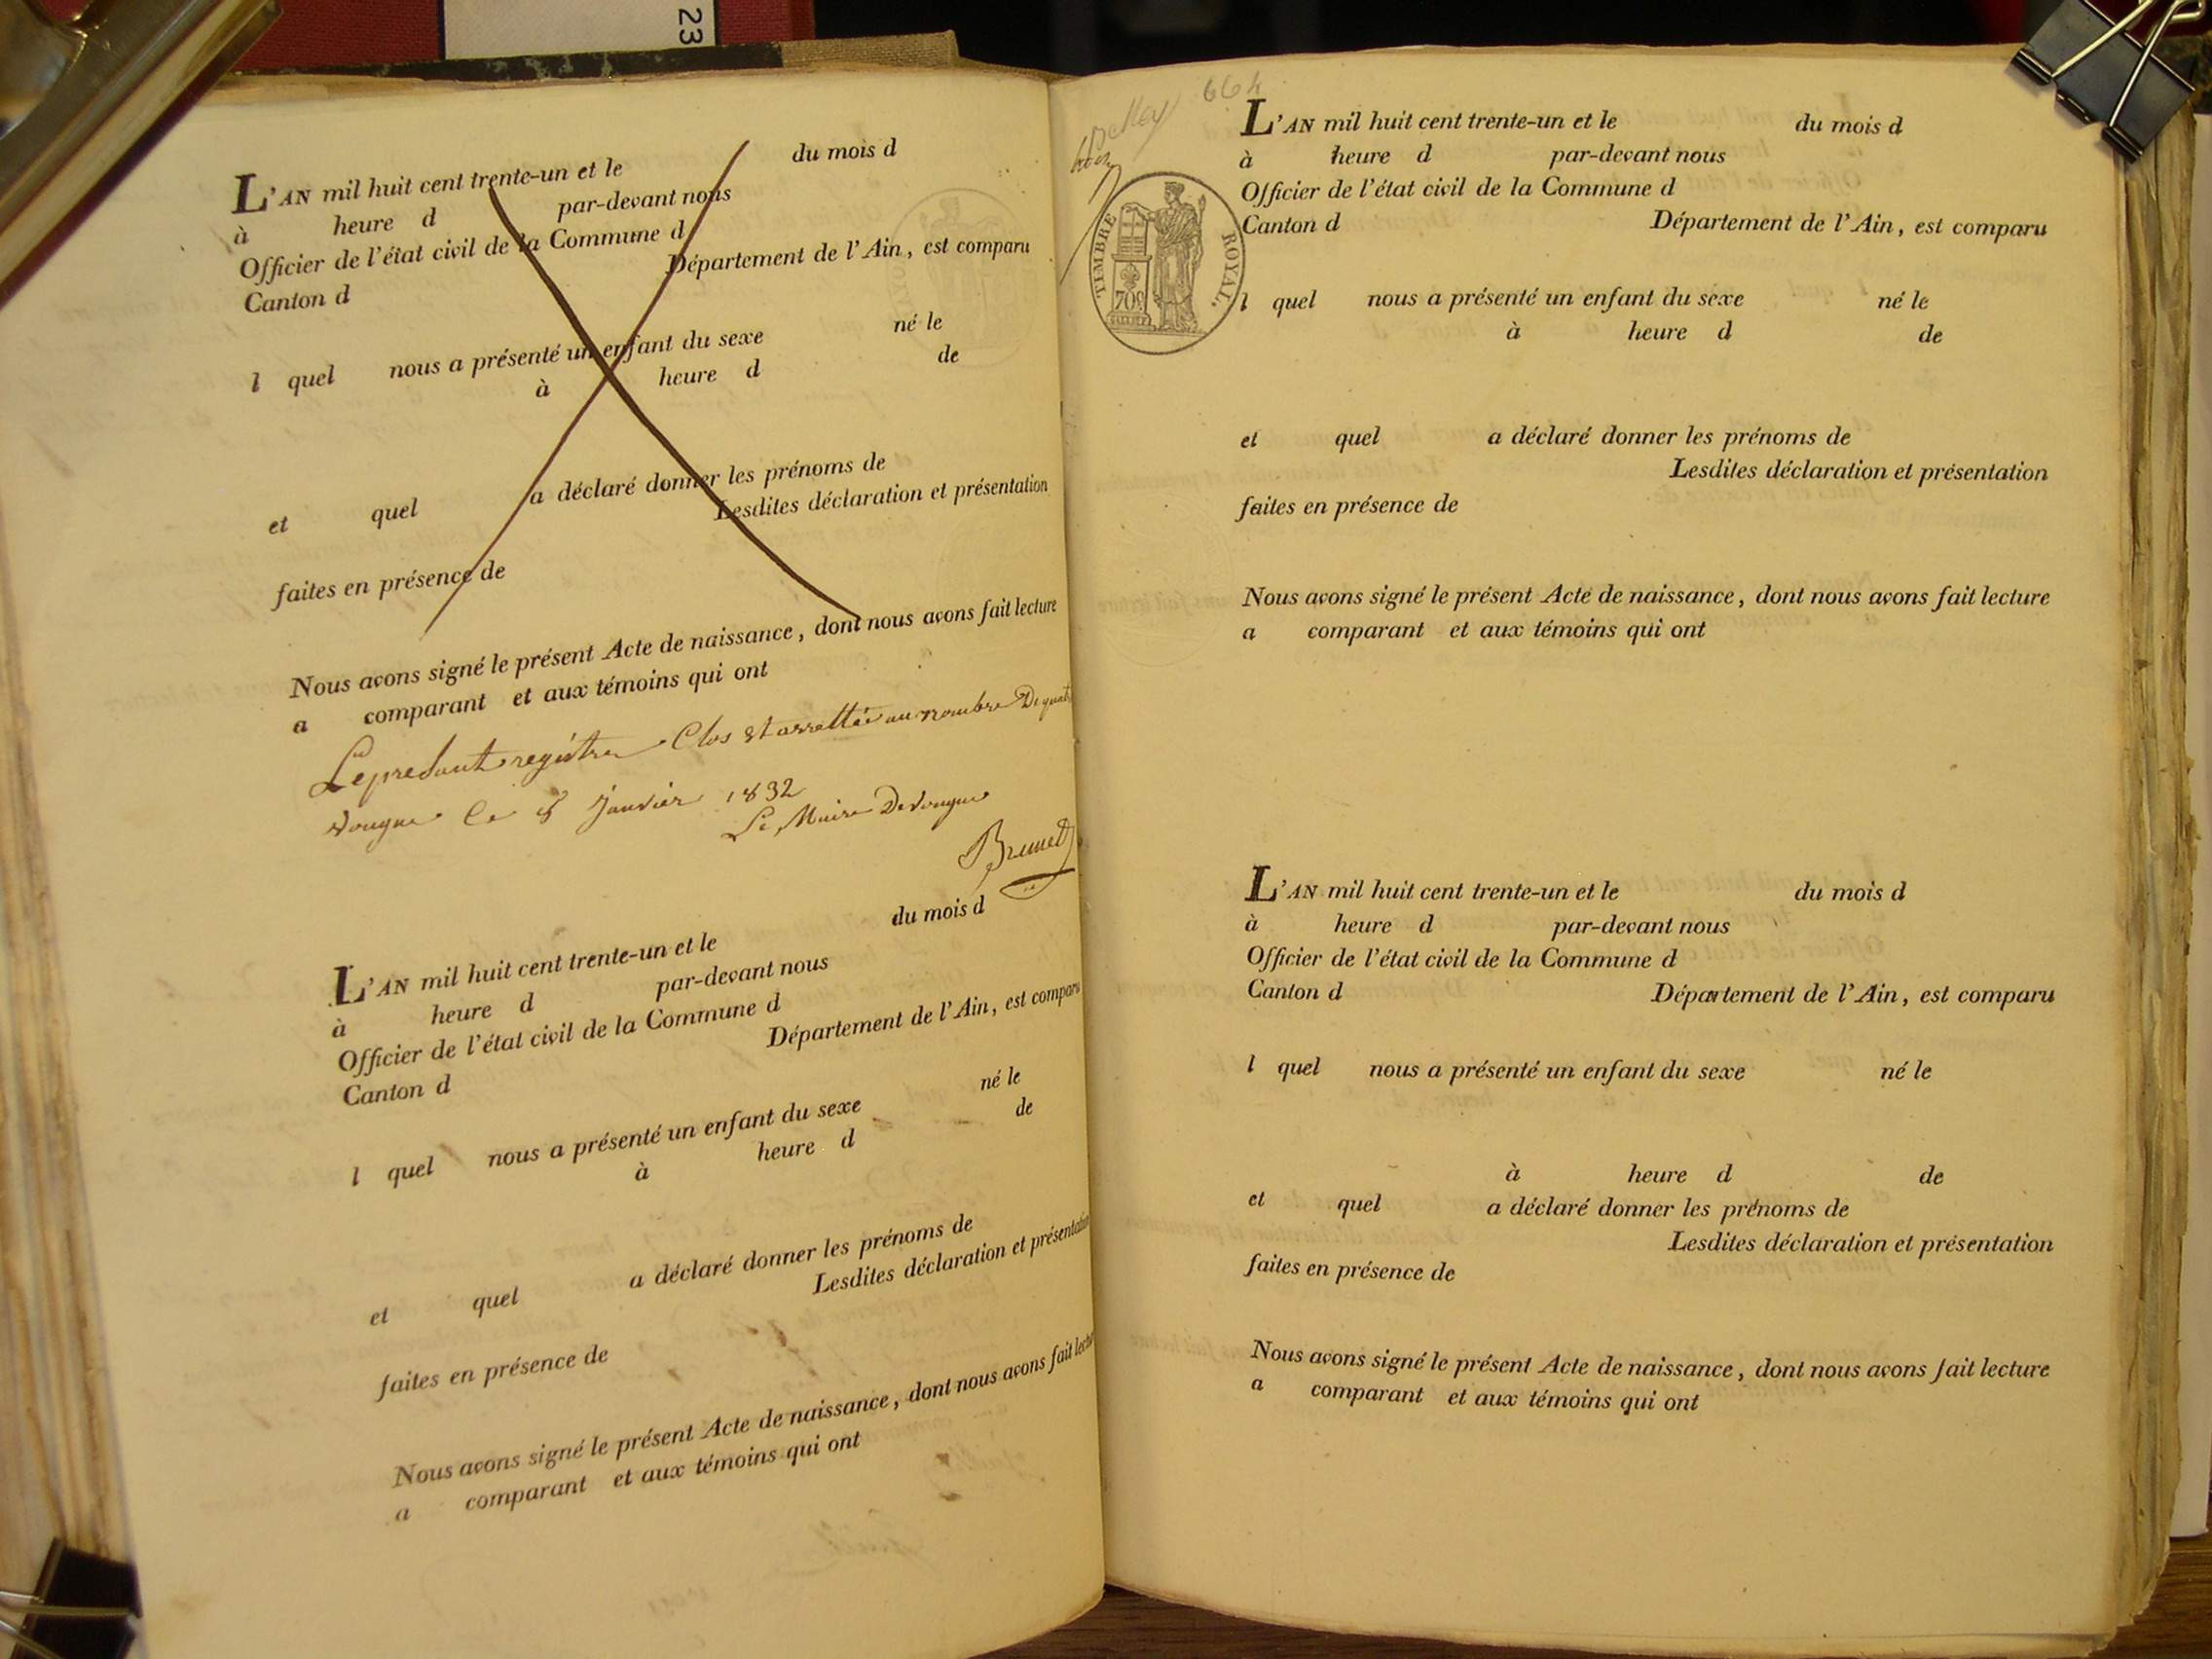 23
L'AN mil huit cent trente-un et le du mois d
à heure d par-devant nous
Officier de l'état civil de la Commune d
Canton d Département de l'Ain, est comparu
l quel nous a présenté un enfant du sexe né le
à heure d de
et quel a déclaré donner les prénoms de
Lesdites déclaration et présentation
faites en présence de
Nous avons signé le présent Acte de naissance, dont nous avons fait lecture
a comparant et aux témoins qui ont
Le present registre Clos et arretté au nombre De quatr
vongne le 8 janvier 1832
Le Maire De vongne
Brunet
L'AN mil huit cent trente-un et le du mois d
à heure d par-devant nous
Officier de l'état civil de la Commune d
Canton d Département de l'Ain, est comparu
l quel nous a présenté un enfant du sexe né le
à heure d de
et quel a déclaré donner les prénoms de
Lesdites déclaration et présentation
faites en présence de
Nous avons signé le présent Acte de naissance, dont nous avons fait lectu
a comparant et aux témoins qui ont
664
Belley
TIMBRE ROYAL.
70c
L'AN mil huit cent trente-un et le du mois d
à heure d par-devant nous
Officier de l'état civil de la Commune d
Canton d Département de l'Ain, est comparu
l quel nous a présenté un enfant du sexe né le
à heure d de
et quel a déclaré donner les prénoms de
Lesdites déclaration et présentation
faites en présence de
Nous avons signé le présent Acte de naissance, dont nous avons fait lecture
a comparant et aux témoins qui ont
L'AN mil huit cent trente-un et le du mois d
à heure d par-devant nous
Officier de l'état civil de la Commune d
Canton d Département de l'Ain, est comparu
l quel nous a présenté un enfant du sexe né le
à heure d de
et quel a déclaré donner les prénoms de
Lesdites déclaration et présentation
faites en présence de
Nous avons signé le présent Acte de naissance, dont nous avons fait lecture
a comparant et aux témoins qui ont